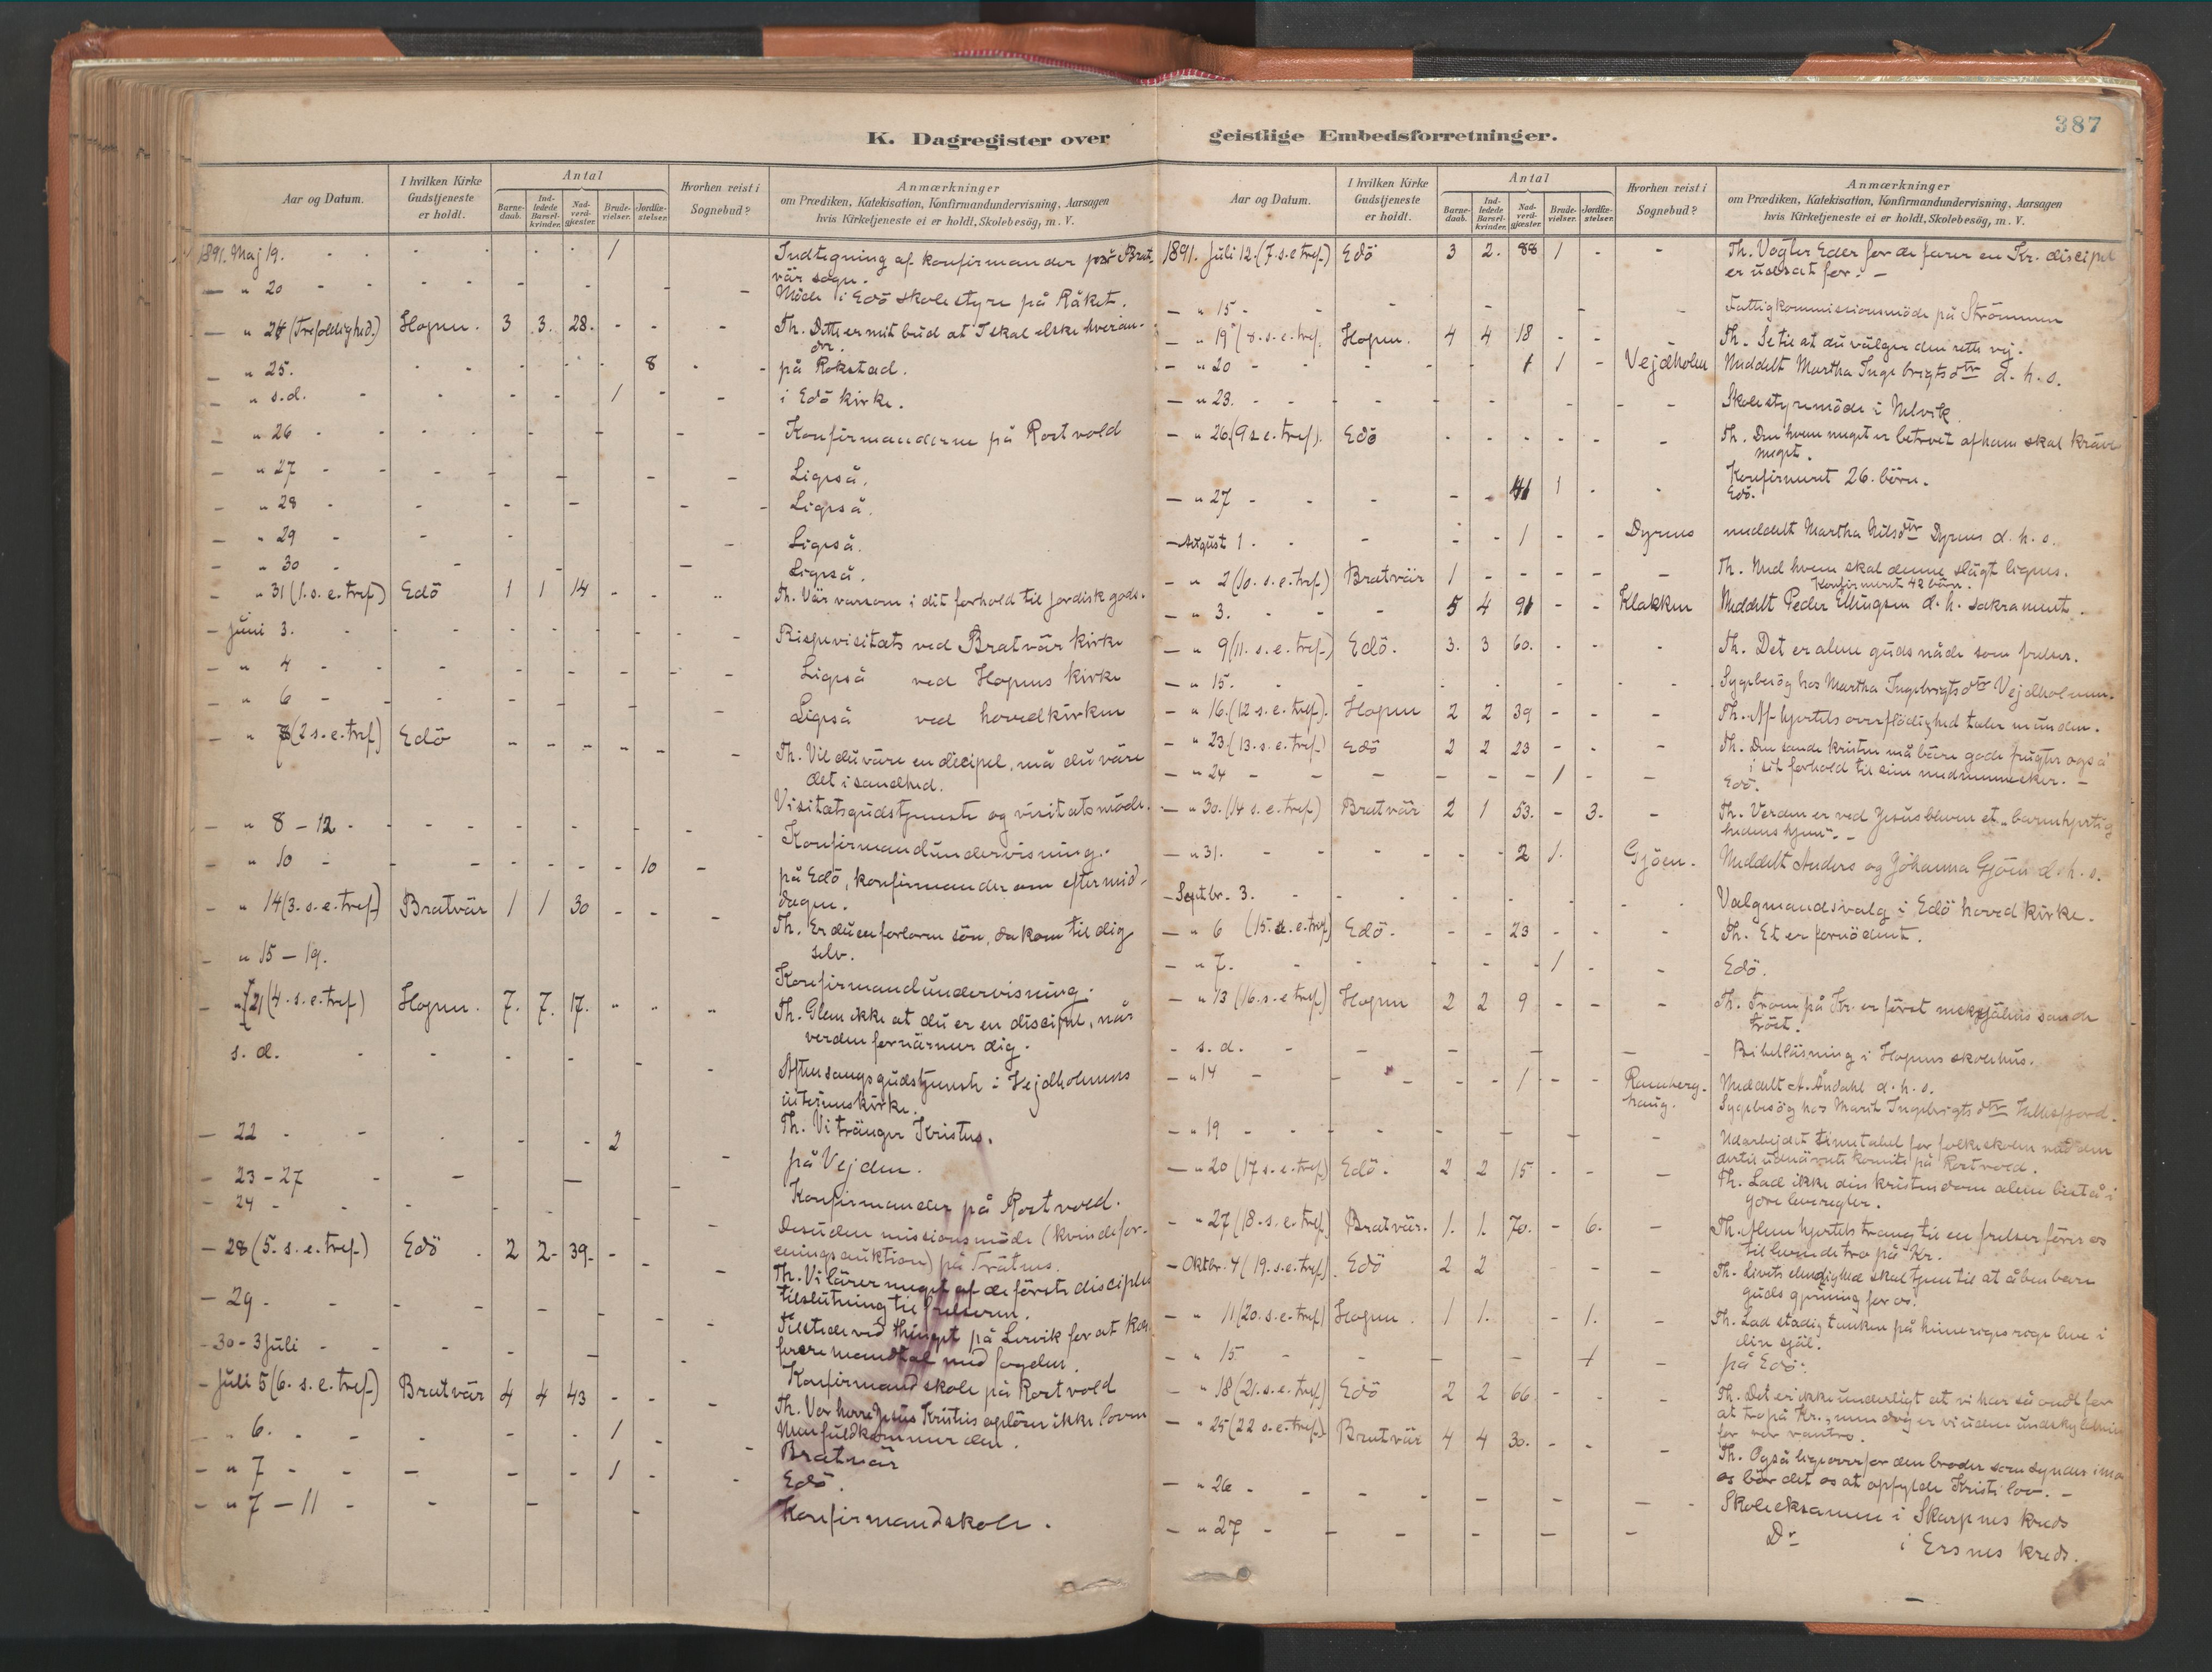 K. Dagregister over
Aar og Datum.
I hvilken Kirke Gudstjeneste er holdt.
Antal
Barnedaab.
Indledede Barselkvinder.
Nadverdgjester.
Brudevielser.
Jordfæstelser.
Hvorhen reist i Sognebud?
Anmærkninger
om Prædiken, Katekisation, Konfirmandundervisning, Aarsagen
hvis Kirketjeneste ei er holdt, Skolebesög, m. V.
1891. Maj 19. - - - - - - - 1 Indtegning af konfirmander på Brat-
vär sogn.
— " 20 - - - - - - - - - Möde i Edö skolestyre på Råket.
— " 24 (Trefoldighed.) Hopen. 3 3. 28. - - - Th. Dette er mit bud at I skal elske hveran-
dre.
— " 25. - - - - - 8 - - på Rokstad.
— " s.d. - - - - - 1 - - i Edö kirke.
— " 26 - - - - - - - - - Konfirmanderne på Rostvold
— " 27 - - - - - - - Ligeså.
— " 28 - - - - - - Ligeså.
— " 29 - - - - Ligeså.
— " 30 - - - Ligeså.
— " 31 (1. s. e. tref.) Edö 1 1 14 - - - Th. Vär varsom i dit forhold til jordisk gods.
— Juni 3. - - - - - - - - Bispevisitats ved Bratvär kirke
— " 4 - - - - - - - - Ligeså ved Hopens kirke
— " 6 - - - - - - - - Ligeså ved hovedkirken
— " 7 (2 s. e. tref) Edö - - - - - - Th. Vil du väre en discipel, må du väre
det i sandhed.
Visitatsgudstjeneste og visitatsmöde.
— " 8 – 12 - - - - - - - - Konfirmandundervisning.
— " 10 - - - - - - - 10 - på Edö, konfirmander om eftermid-
dagen.
— " 14 (3. s. e. tref) Bratvär 1 1 30 - - - Th. Er du en forloren sön, da kom til dig
selv.
— " 15 – 19. Konfirmandundervisning.
— " 21 (4. s. e. tref) Hopen. 7. 7. 17. - - - Th. Glem ikke at du er en discipel, når
verden fornärmer dig.
s. d. - - - - - - - Aftensangsgudstjeneste i Vejdholmens
interimskirke.
Th. Vi tränger Kristus.
— 22 - - - - - 2 - på Vejden.
— 23 – 27 - - - - Konfirmander på Rostvold.
— 24 - - - - - - - - Desuden missionsmöde (kvindefor-
eningsauktion) på
— 28 (5. s. e. tref.) Edö . 2 2 - 39 - - - - Th. Vi lärer meget af de förste disciples
tilslutning til frelseren.
— 29 - - - - - - - - Tilstede ved thinget på Lervik for at kon-
ferere mandtal med fogden.
— 30 – 3 Juli - - - - - Konfirmandskole på Rostvold
— Juli 5 (6. s. e. tref) Bratvär 4 4 43 - - - Th. Vor herre Jesus Kristus oplöser ikke loven
Men fuldkommer den.
— " 6. - - - - - 1 - - Bratvär
— " 7 - - - - - 1 - - Edö.
— " 7 – 11 - - - - Konfirmandskole.
387
geistlige Embedsforretninger.
Aar og Datum.
I hvilken Kirke Gudstjeneste er holdt.
Antal
Barnedaab.
Indledede Barselkvinder.
Nadverdgjester.
Brudevielser.
Jordfæstelser.
Hvorhen reist i Sognebud?
Anmærkninger
om Prædiken, Katekisation, Konfirmandundervisning, Aarsagen
hvis Kirketjeneste ei er holdt, Skolebesög, m. V.
1891. Juli 12. (7. s. e tref.) Edö 3 2. 88 1 - - Th. Vogter Eder for de farer en Kr. discipel
er udsat for. —
— " 15 - - - - - - Fattigkommissionsmöde på Strömmen
— " 19 (8. s. e. tref. Hopen. 4 4 18 - - - Th. Se til at du välger den rette vej.
— " 20 - - - - - 1 1 - Vejdholm Meddelt Martha Ingebrigtsdtr d. h. s.
— " 23. - - - - - - - - - Skolestyremöde i Nelvik.
— " 26 (9 s. e. tref). Edö - - - - - - Th. Den hvem meget er betroet af ham skal kräve
meget.
Konfirmeret 26. börn.
— " 27 - - - - - 41 1 - - Edö.
— August 1. - - - - 1 - - Dyrnes meddelt Martha Nilsdtr Dyrnes d. h. s.
— " 2 (10. s. e. tref.) Bratvär 1 - - - - - Th. Med hvem skal denne slägt lignes.
Konfirmeret 42 börn.
— " 3. - - - 5 4 91 - - Klakken Meddelt Peder Ellingsen d. h. sakrament.
— " 9 (11. s. e. tref.) Edö. 3. 3 60. - - - Th. Det er alene guds nåde som frelser.
— " 15. - - - - - - - - Sygebesög hos Martha Ingebrigtsdtr Vejdholmen.
— " 16. (12 s. e. tref.). Hopen 2 2 39 - - - Th. Af hjertets overflödighed taler munden.
— " 23. (13. s. e. tref.) Edö 2 2 23 - - - Th. Den sande kristen må bäre gode frugter også
i sit forhold til sine medmennesker. —
— " 24 - - - - - - 1 - - Edö.
— " 30. (14 s. e. tref.) Bratvär 2 1 53. - 3. - Th. Verden er ved Jesus bleven et „barmhjertig
hedens hjem". —
— " 31. - - - - - 2 1. Gjöen. Meddelt Anders og Johanna Gjöen d. h. s.
— Septbr. 3. - - - - - - - - Valgmandsvalg i Edö hovedkirke.
— " 6 (15. s. e. tref) Edö. - - 23 - - - Th. Et er fornödent.
— " 7. - - - - - 1 - - Edö.
— " 13 (16. s. e tref) Hopen 2 2 9 - - - Th. Troen på Kr. er först själens sande
tröst.
— s. d. - - - - - - Bibelläsning i Hopens skolehus.
— " 14 - - - - - 1 - - Ramberg-
haug. Meddelt A. Åndahl d. h. s.
Sygebesög hos Marit Ingebrigtsdtr
— " 19 - - - - - - - Udarbejdet timetabel for folkeskolen med den
dertil udnävnte komite på Rostvold.
— " 20 (17 s. e. tref) Edö. 2 2 15 - - - Th. Lad ikke din kristendom alene bestå i
ydre leveregler.
— " 27 (18. s. e. tref.) Bratvär. 1. 1. 70. - 6. - Th. Alene hjertets trang til en frelser förer os
til levende tro på Kr.
— Oktbr. 4 (19. s. e. tref). Edö 2 2 - - - Th. Livets elendighed skal tjene til at åbenbare
guds gjerning for os.
— " 11 (20. s. e. tref) Hopen. 1 1. - 1. - Th. Lad stadig tanken på himmeriges rige leve i
din själ.
— " 15 - - - - - 1 - på Edö.
— " 18 (21. s. e. tref) Edö 2 2 66. - - - Th. Det er ikke underligt at vi har så ondt for
at tro på Kr., men dog er vi uden undskyldning
for vor vantro.
— " 25 (22 s. e. tref.) Bratvär 4 4 30. - - - Th. Også ligeoverfor den broder som synder imod
os bör det os at opfylde Kristi lov. —
— " 26 - - - - - - - - Skoleeksamen i Skarpnes kreds
— " 27 - - - - - - Do i Ersnes kreds.